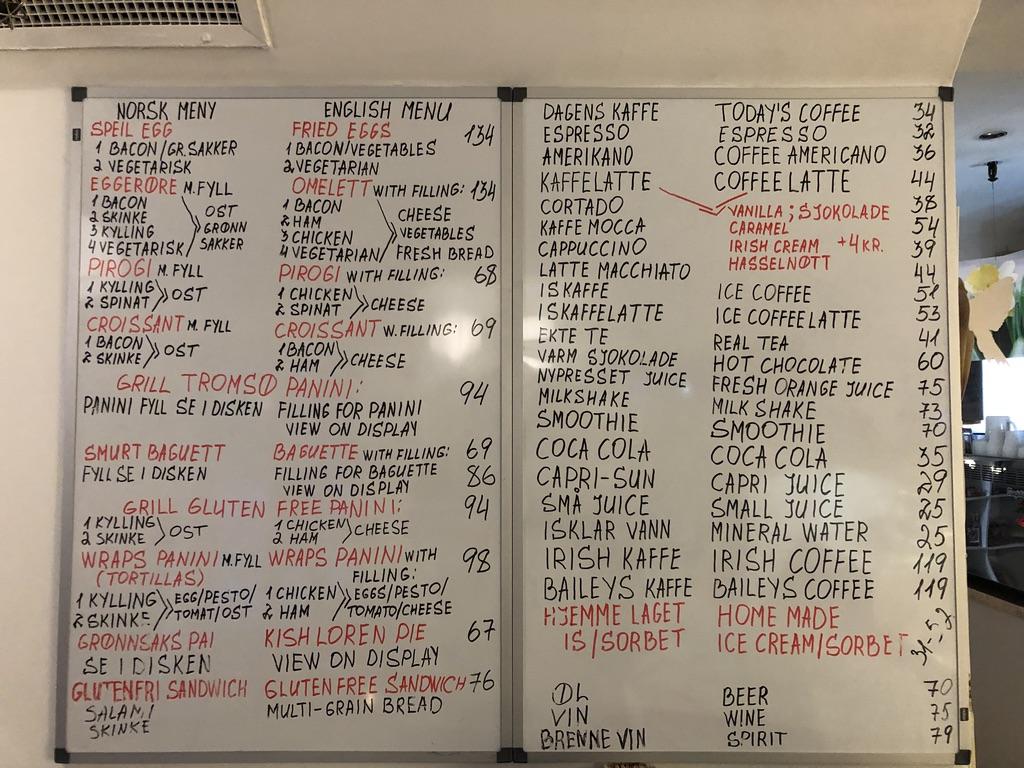 NORSK MENY ENGLISH MENU
SPEIL EGG FRIED EGGS 134
1 BACON/GR.SAKKER 1 BACON/VEGETABLES
2 VEGETARISK 2 VEGETARIAN
EGGERØRE M.FYLL OMELETT WITH FILLING: 134
1 BACON OST 1 BACON CHEESE
2 SKINKE GRØNN 2 HAM VEGETABLES
3 KYLLING SAKKER 3 CHICKEN
4 VEGETARISK 4 VEGETARIAN FRESH BREAD
PIROGI M.FYLL PIROGI WITH FILLING: 68
1 KYLLING OST 1 CHICKEN CHEESE
2 SPINAT 2 SPINAT
CROISSANT M.FYLL CROISSANT W.FILLING: 69
1 BACON OST 1 BACON CHEESE
2 SKINKE 2 HAM
GRILL TROMSØ PANINI: 94
PANINI FYLL SE I DISKEN FILLING FOR PANINI
VIEW ON DISPLAY
SMURT BAGUETT BAGUETTE WITH FILLING: 69
FYLL SE I DISKEN FILLING FOR BAGUETTE 86
VIEW ON DISPLAY
GRILL GLUTEN FREE PANINI: 94
1 KYLLING OST 1 CHICKEN CHEESE
2 SKINKE 2 HAM
WRAPS PANINI M.FYLL WRAPS PANINI WITH 98
(TORTILLAS) FILLING:
1 KYLLING EGG/PESTO/ 1 CHICKEN EGGS/PESTO/
2 SKINKE TOMAT/OST 2 HAM TOMATO/CHEESE
GRØNNSAKS PAI KISH LOREN PIE 67
SE I DISKEN VIEW ON DISPLAY
GLUTENFRI SANDWICH GLUTEN FREE SANDWICH 76
SALAMI MULTI-GRAIN BREAD
SKINKE
DAGENS KAFFE TODAY'S COFFEE 34
ESPRESSO ESPRESSO 32
AMERIKANO COFFEE AMERICANO 36
KAFFELATTE COFFEE LATTE 44
CORTADO VANILLA; SJOKOLADE 38
KAFFE MOCCA CARAMEL 54
CAPPUCCINO IRISH CREAM +4 KR. 39
LATTE MACCHIATO HASSELNØTT 44
ISKAFFE ICE COFFEE 51
ISKAFFELATTE ICE COFFEELATTE 53
EKTE TE REAL TEA 41
VARM SJOKOLADE HOT CHOCOLATE 60
NYPRESSET JUICE FRESH ORANGE JUICE 75
MILKSHAKE MILK SHAKE 73
SMOOTHIE SMOOTHIE 70
COCA COLA COCA COLA 35
CAPRI-SUN CAPRI JUICE 29
SMÅ JUICE SMALL JUICE 25
ISKLAR VANN MINERAL WATER 25
IRISH KAFFE IRISH COFFEE 119
BAILEYS KAFFE BAILEYS COFFEE 119
HJEMME LAGET HOME MADE
IS/SORBET ICE CREAM/SORBET
ØL BEER 70
VIN WINE 75
BRENNEVIN SPIRIT 79